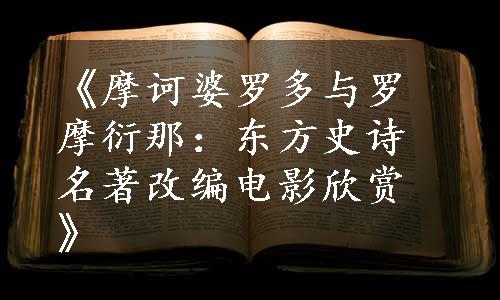 《摩诃婆罗多与罗
摩衍那：东方史诗
名著改编电影欣赏
》